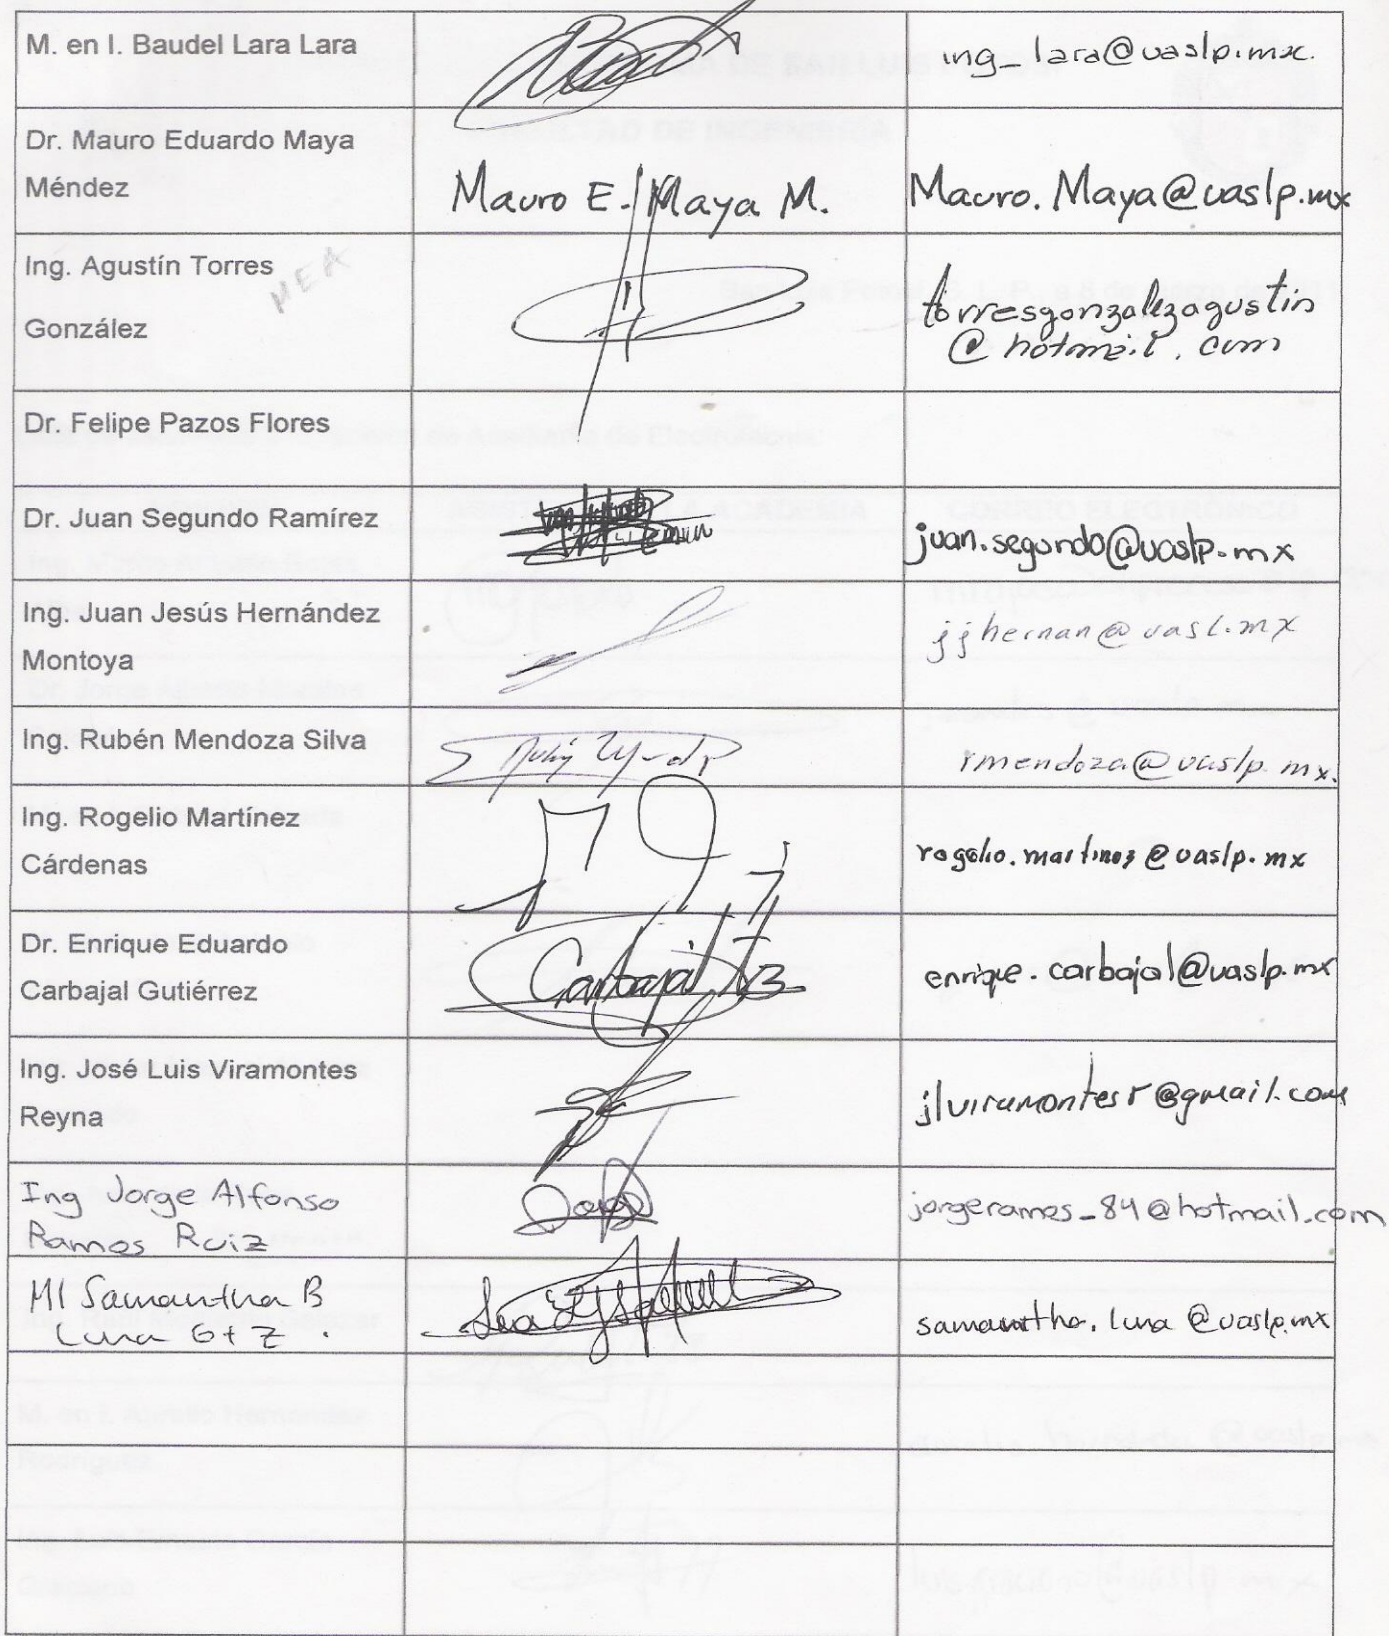 M. en I. Baudel Lara Lara
ing_lara@uaslp.mx.
Dr. Mauro Eduardo Maya
Méndez
Mauro E. Maya M.
Mauro.Maya@uaslp.mx
Ing. Agustín Torres
González
torresgonzalezagustin
@hotmail.com
Dr. Felipe Pazos Flores
Dr. Juan Segundo Ramírez
juan.segundo@uaslp.mx
Ing. Juan Jesús Hernández
Montoya
jjhernan@uasl.mx
Ing. Rubén Mendoza Silva
rmendoza@uaslp.mx.
Ing. Rogelio Martínez
Cárdenas
rogelio.martinez@uaslp.mx
Dr. Enrique Eduardo
Carbajal Gutiérrez
Carbajal
enrique.carbajal@uaslp.mx
Ing. José Luis Viramontes
Reyna
jlviramontesr@gmail.com
Ing Jorge Alfonso
Ramos Ruiz
jorgeramos_84@hotmail.com
MI Samantha B
Luna Gtz.
samantha.luna@uaslp.mx